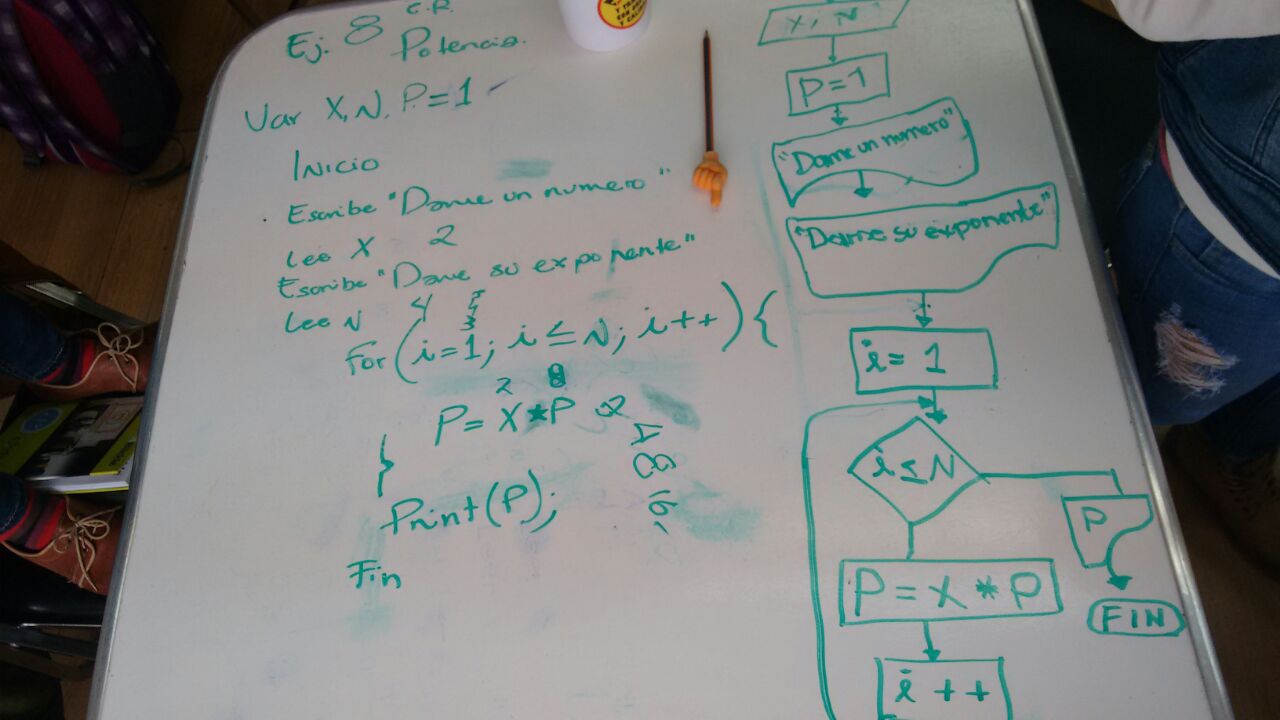 Ej. 8 C.P.
Potencia.
Var X, N, P=1
INICIO
Escribe "Dame un numero"
Lee X 2
Escribe "Dame su exponente"
Lee N 4
For (i=1; i≤N; i++) {
2 8
P=X*P 2
4
8
16
}
Print(P);
Fin
X, N
P=1
"Dame un numero"
"Dame su exponente"
i= 1
i≤N
P
P = X * P
FIN
i ++